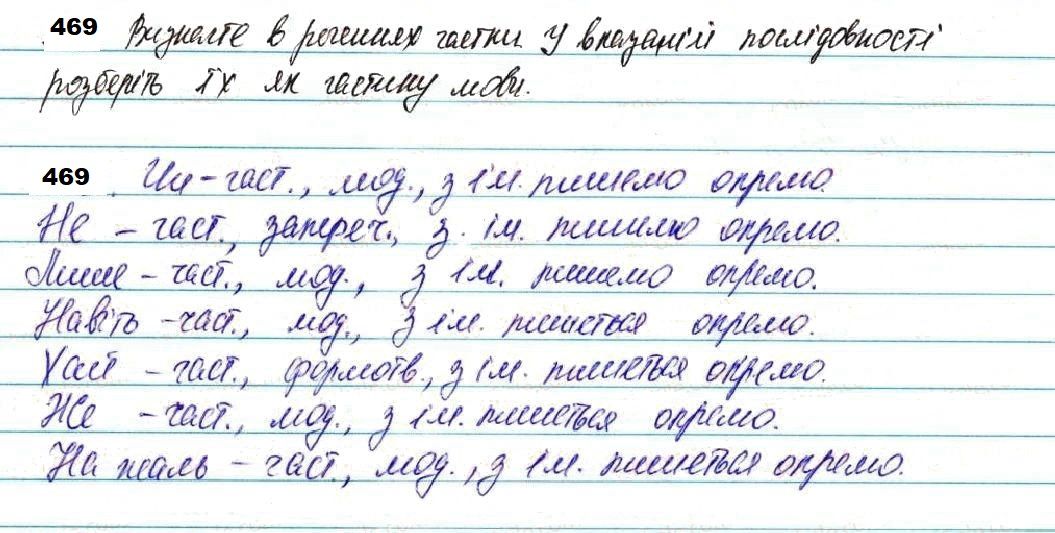 469 Визначте в реченнях частки. У вказаній послідовності
розберіть їх як частину мови.
469 Чи - част., мод., з ім. пишемо окремо.
Не - част., запереч., з. ім. пишемо окремо.
Лише - част., мод., з ім. пишемо окремо.
Навіть - част., мод., з ім. пишеться окремо.
Хай - част., формотв., з ім. пишеться окремо.
Же - част., мод., з ім. пишеться окремо.
На жаль - част., мод., з ім. пишеться окремо.